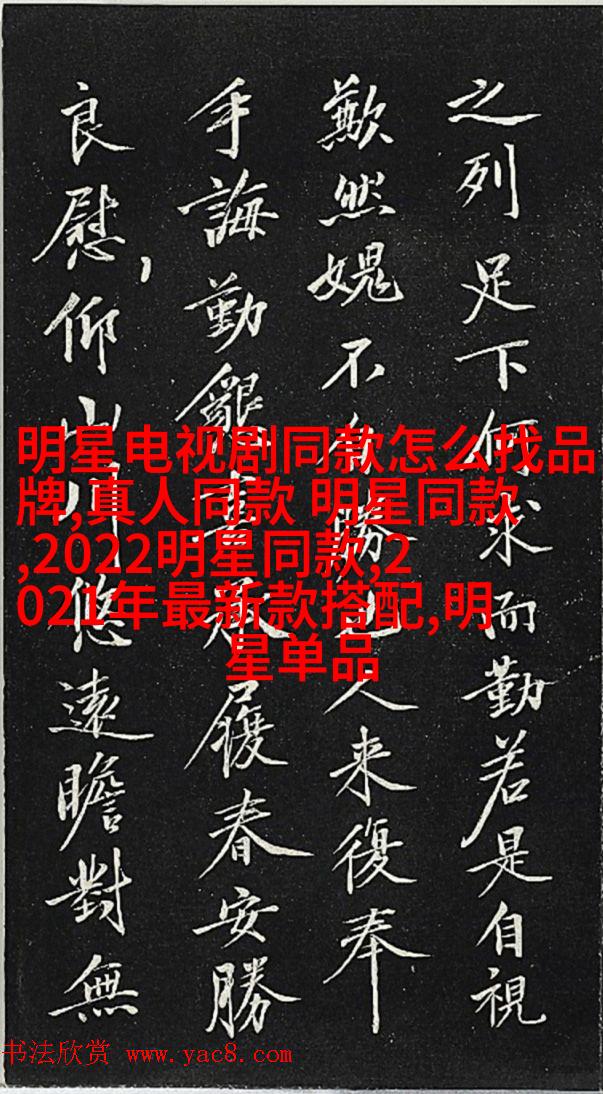 之列足下何求而勤若是自視
歉然媿不勝也人来復奉
手誨勤懇喜承履春安勝
良慰,仰山川悠遠瞻對無
明星电视剧同款怎么找品
牌,真人同款 明星同款
,2022明星同款,2
021年最新款搭配,明
星单品
书法欣赏 www.yac8.com